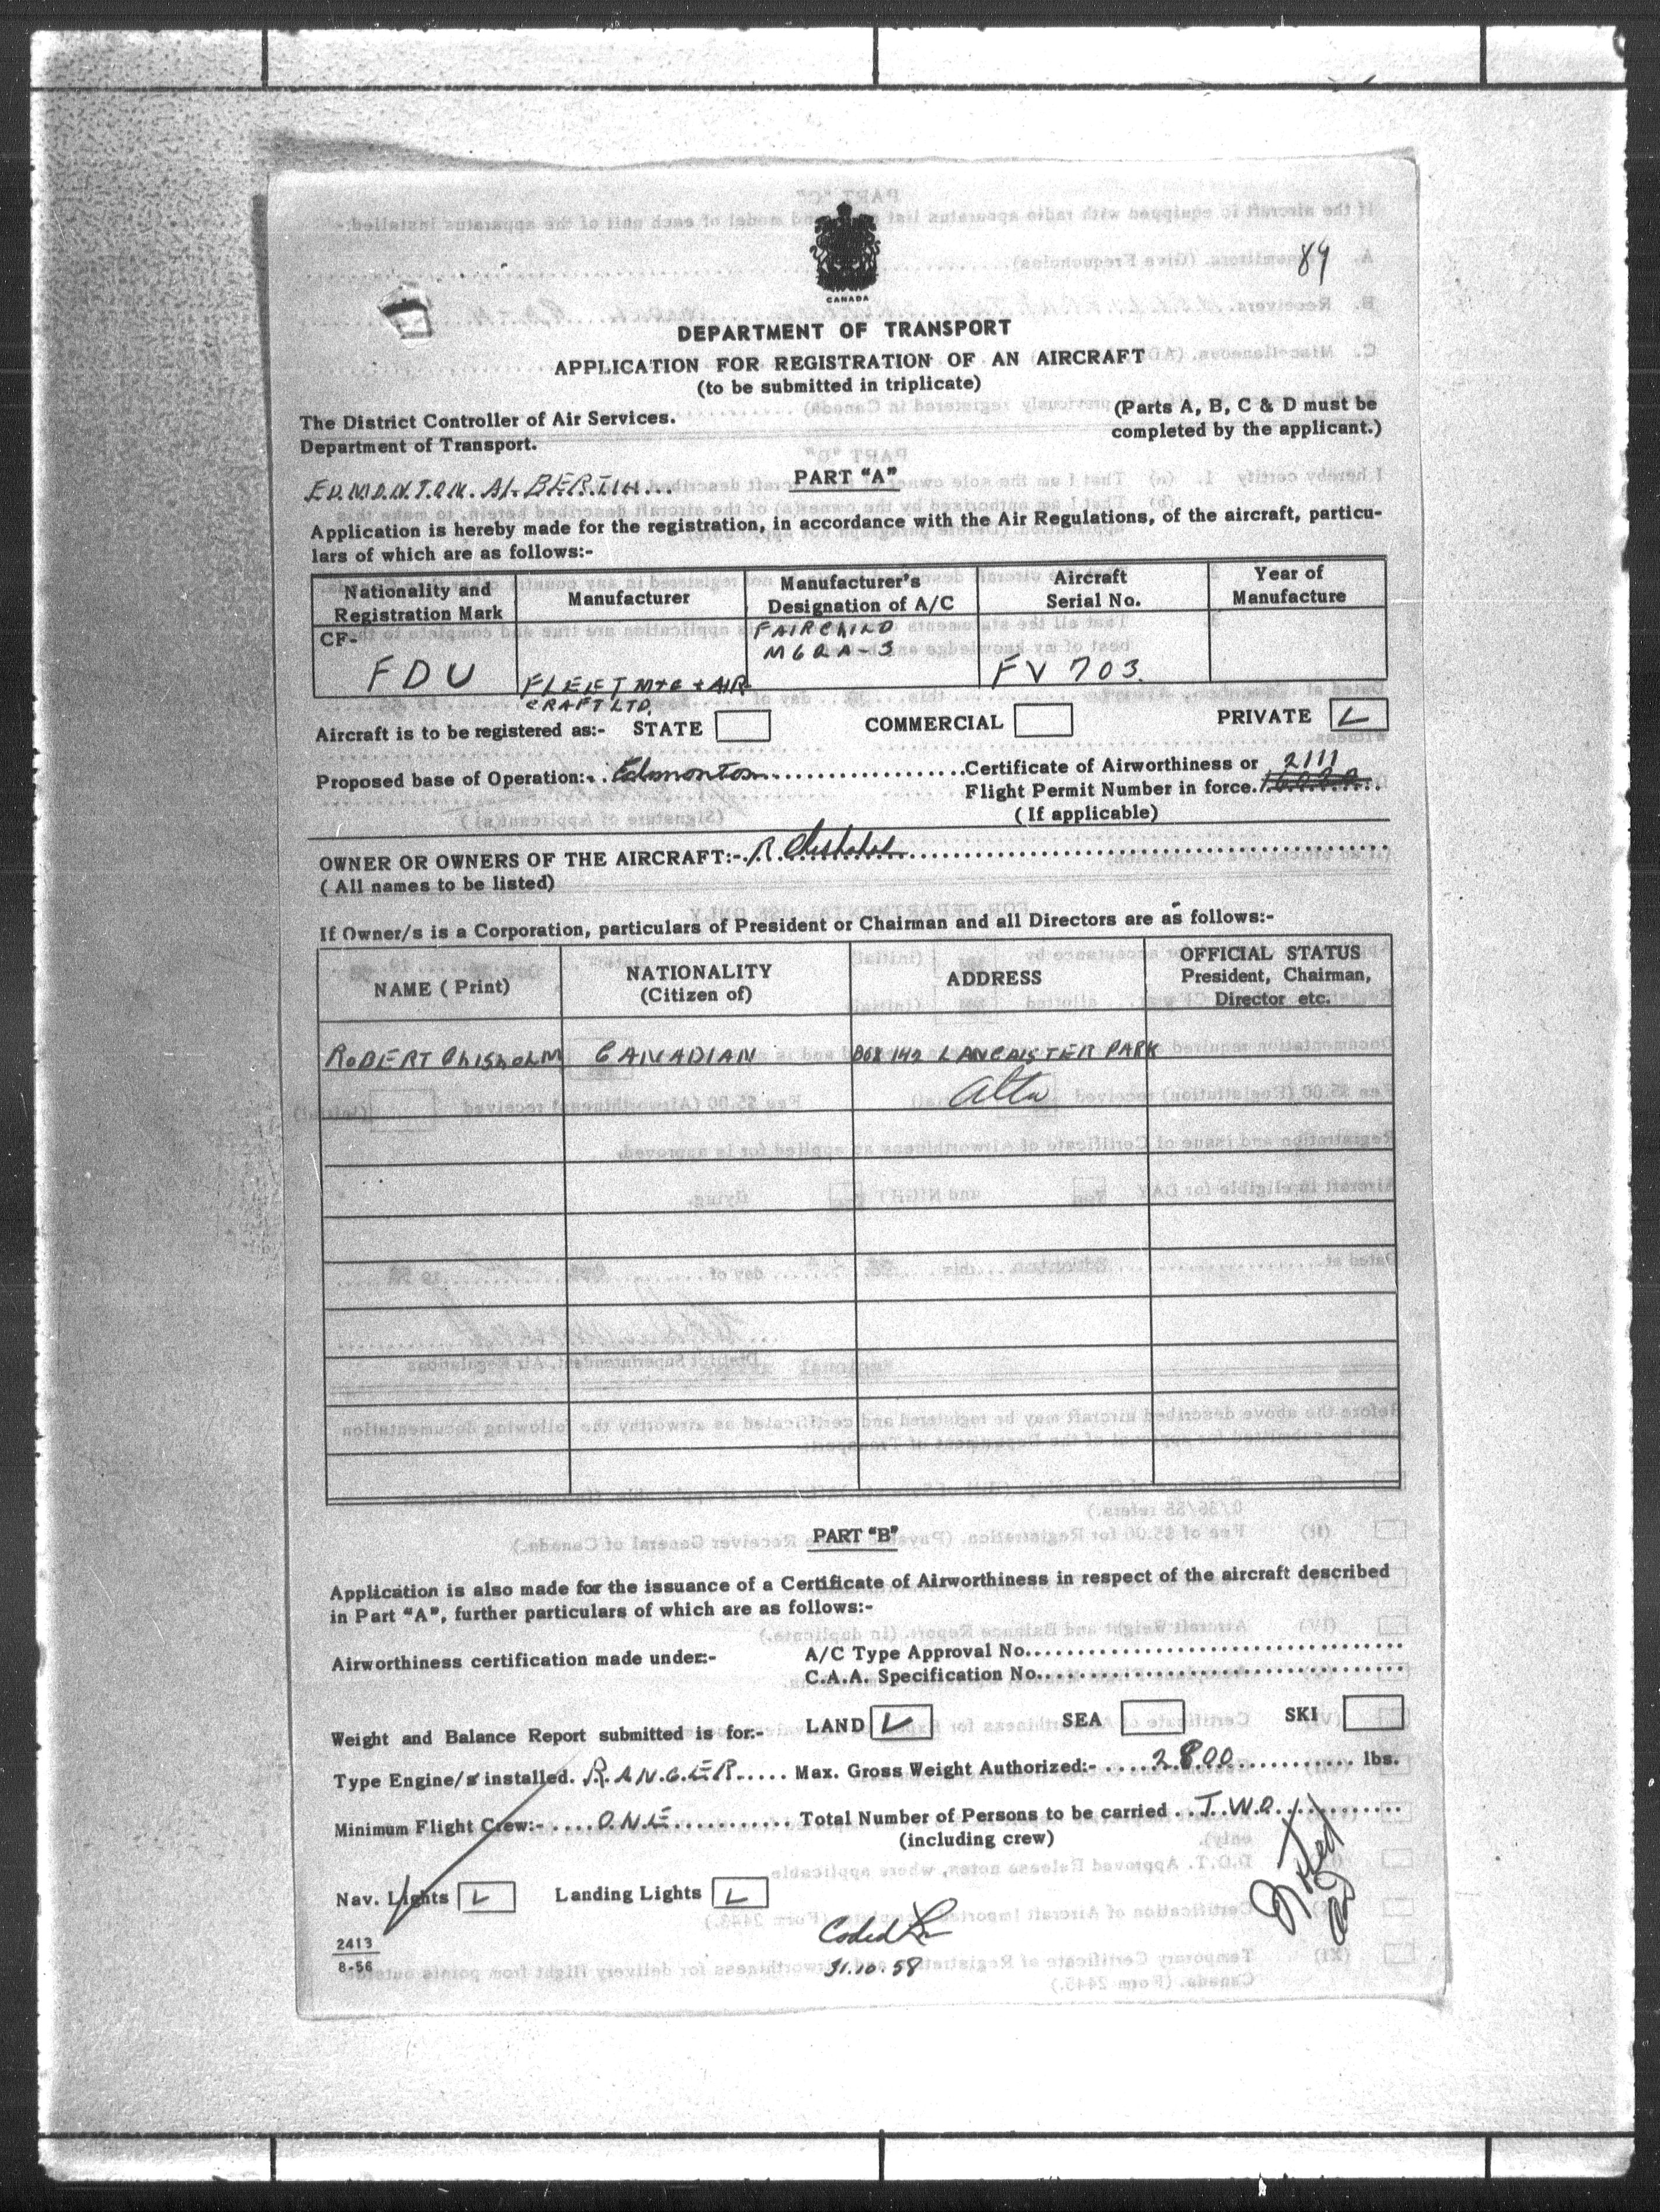 89
CANADA
DEPARTMENT OF TRANSPORT
APPLICATION FOR REGISTRATION OF AN AIRCRAFT
(to be submitted in triplicate)
The District Controller of Air Services.
Department of Transport.
(Parts A, B, C & D must be
completed by the applicant.)
EDMONTON. ALBERTA...
PART "A"
Application is hereby made for the registration, in accordance with the Air Regulations, of the aircraft, particu-
lars of which are as follows:-
Nationality and
Registration Mark
Manufacturer
Manufacturer's
Designation of A/C
Aircraft
Serial No.
Year of
Manufacture
CF-
FDU
FLEET MFG & AIR
CRAFT LTD.
FAIRCHILD
M62A-3
FV 703.
Aircraft is to be registered as:- STATE COMMERCIAL PRIVATE
Proposed base of Operation:. Edmonton
Certificate of Airworthiness or 2111
Flight Permit Number in force.
(If applicable)
OWNER OR OWNERS OF THE AIRCRAFT:- R. Chisholm
(All names to be listed)
If Owner/s is a Corporation, particulars of President or Chairman and all Directors are as follows:-
NAME (Print)
NATIONALITY
(Citizen of)
ADDRESS
OFFICIAL STATUS
President, Chairman,
Director etc.
ROBERT CHISHOLM CANADIAN BOX 142 LANCASTER PARK
Alta
PART "B"
Application is also made for the issuance of a Certificate of Airworthiness in respect of the aircraft described
in Part "A", further particulars of which are as follows:-
Airworthiness certification made under:- A/C Type Approval No.
C.A.A. Specification No.
Weight and Balance Report submitted is for:- LAND SEA SKI
Type Engine/s installed. RANGER Max. Gross Weight Authorized:- 2800 lbs.
Minimum Flight Crew:- ONE Total Number of Persons to be carried TWO
(including crew)
Nav. Lights Landing Lights
Noted
Coded
31.10.58
2413
8-56